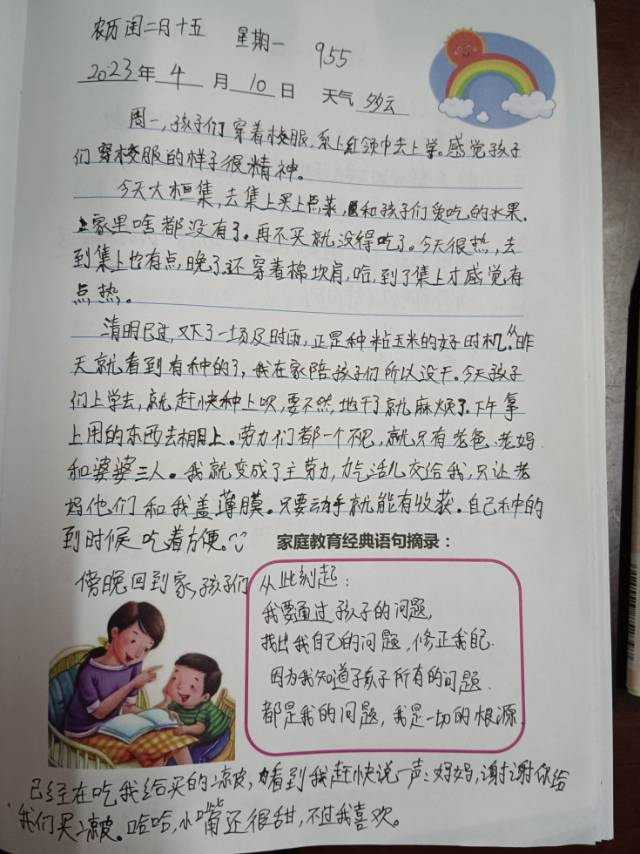 农历闰二月十五 星期一 955
2023年 4 月 10 日 天气 多云
周一,孩子们穿着校服,系上红领巾去上学。感觉孩子
们穿校服的样子很精神。
今天大桓集,去集上买上点菜,和孩子们爱吃的水果。
家里啥都没有了。再不买就没得吃了。今天很热,去
到集上也有点,晚了还穿着棉坎肩,哈,到了集上才感觉有
点热。
清明已过,又下了一场及时雨,正是种粘玉米的好时机。昨
天就看到有种的了,我在家陪孩子们所以没干。今天孩子
们上学去,就赶快种上呗,要不然,地干了就麻烦了。下午拿
上用的东西去相上。劳力们都一个不,就只有老爸 老妈
和婆婆三人。我就变成了主劳力,力气活儿交给我,只让老
妈他们和我盖薄膜。只要动手就能有收获。自己种的
到时候吃着方便。
家庭教育经典语句摘录:
傍晚回到家,孩子们
从此刻起:
我要通过孩子的问题,
找出我自己的问题,修正我自己.
因为我知道了孩子所有的问题.
都是我的问题,我是一切的根源.
已经在吃我给买的凉皮,看到我赶快说一声:好妈,谢谢你给
我们买凉皮。哈哈,小嘴还很甜,不过我喜欢。